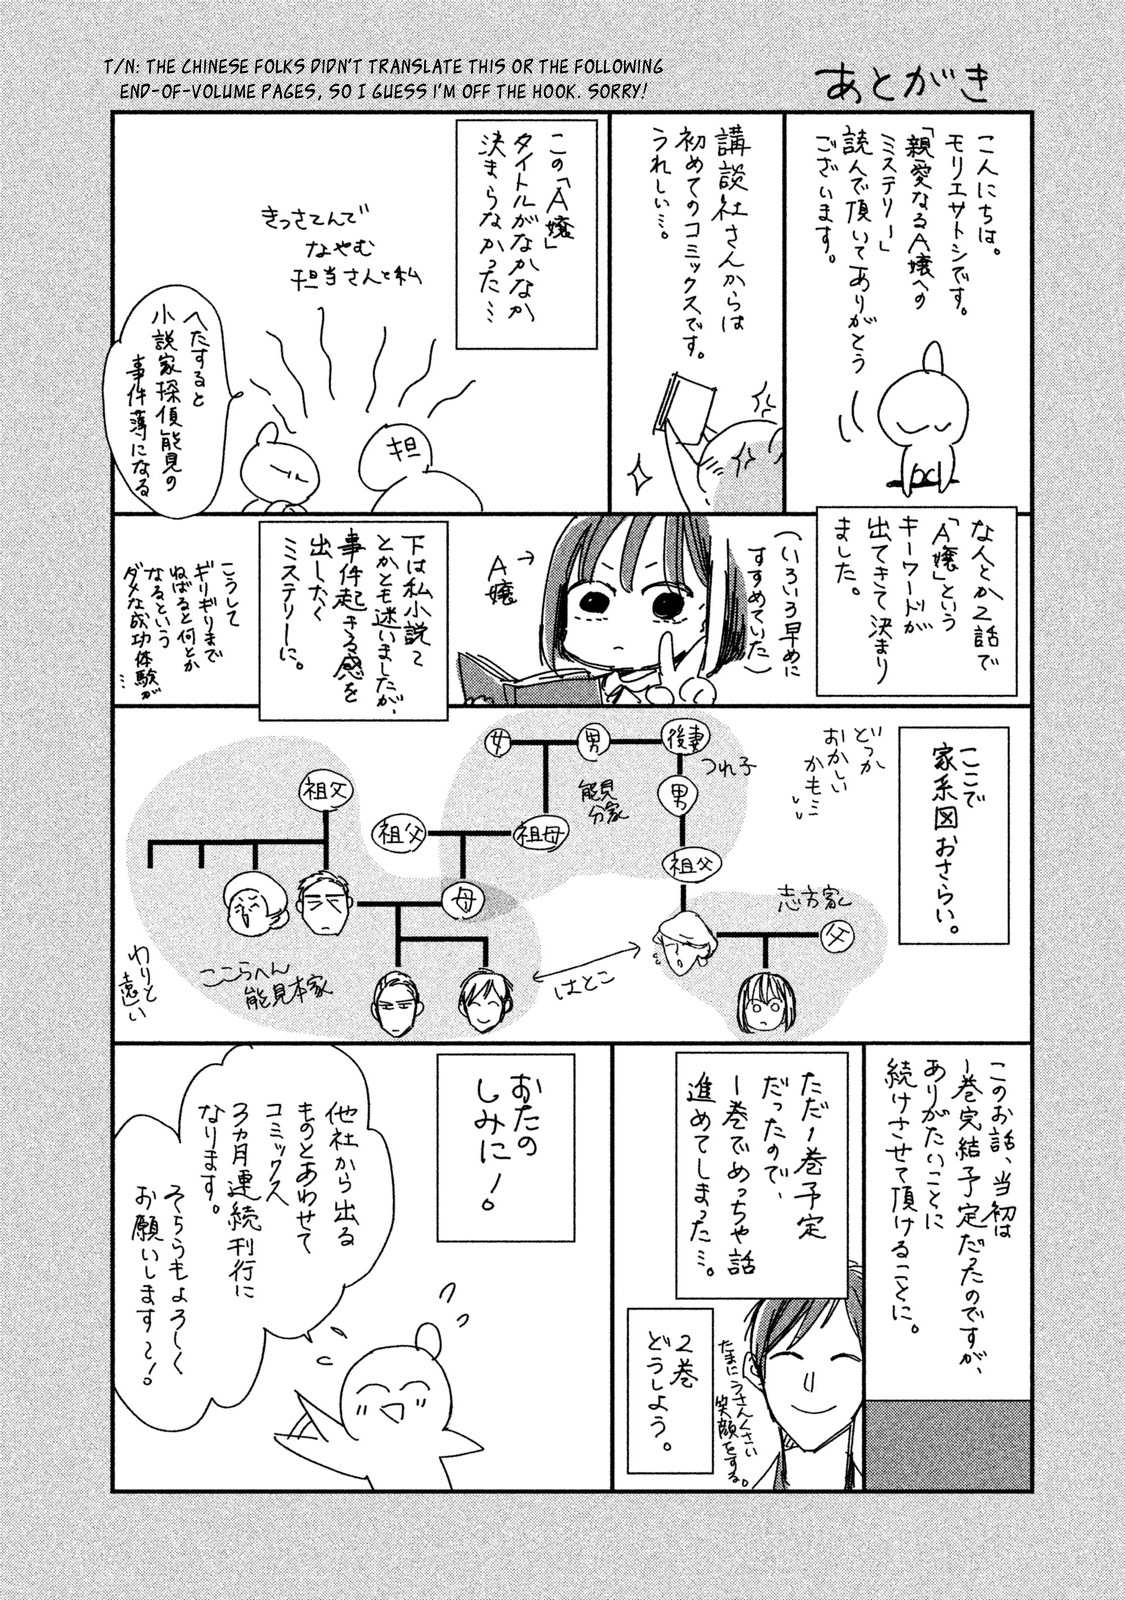 T/N: THE CHINESE FOLKS DIDN'T TRANSLATE THIS OR THE FOLLOWING
END-OF-VOLUME PAGES, SO I GUESS I'M OFF THE HOOK. SORRY!
あとがき
こんにちは。
モリエサトシです。
「親愛なるA嬢への
ミステリー」
読んで頂いてありがとう
ございます。
講談社さんからは
初めてのコミックスです。
うれしい…。
この「A嬢」
タイトルがなかなか
決まらなかった…
きっさてんで
なやむ
担当さんと私
担
へたすると
小説家探偵能見の
事件薄になる
なんとか2話で
「A嬢」という
キーワードが
出てきて決まり
ました。
(いろいろ早めに
すすめていた)
A嬢→
下は私小説て
とかとも迷いましたが、
事件起きる感を
出したく
ミステリーに。
こうして
ギリギリまで
ねばると何とか
なるという
ダメな成功体験が…
ここで
家系図おさらい。
どっか
おかしい
かも…
後妻
男
女
つれ子
男
能見
分家
祖父
祖母
祖父
祖父
母
志方家
父
はとこ
ここらへん
能見本家
わりと
遠い
このお話、当初は
1巻完結予定だったのですが、
ありがたいことに
続けさせて頂けることに。
ただ1巻予定
だったので、
1巻でめっちゃ話
進めてしまった…。
2巻
どうしよう。
たまにうさんくさい
笑顔をする。
おたの
しみに!
他社から出る
ものとあわせて
コミックス
3カ月連続刊行に
なります。
そちらもよろしく
お願いします〜!